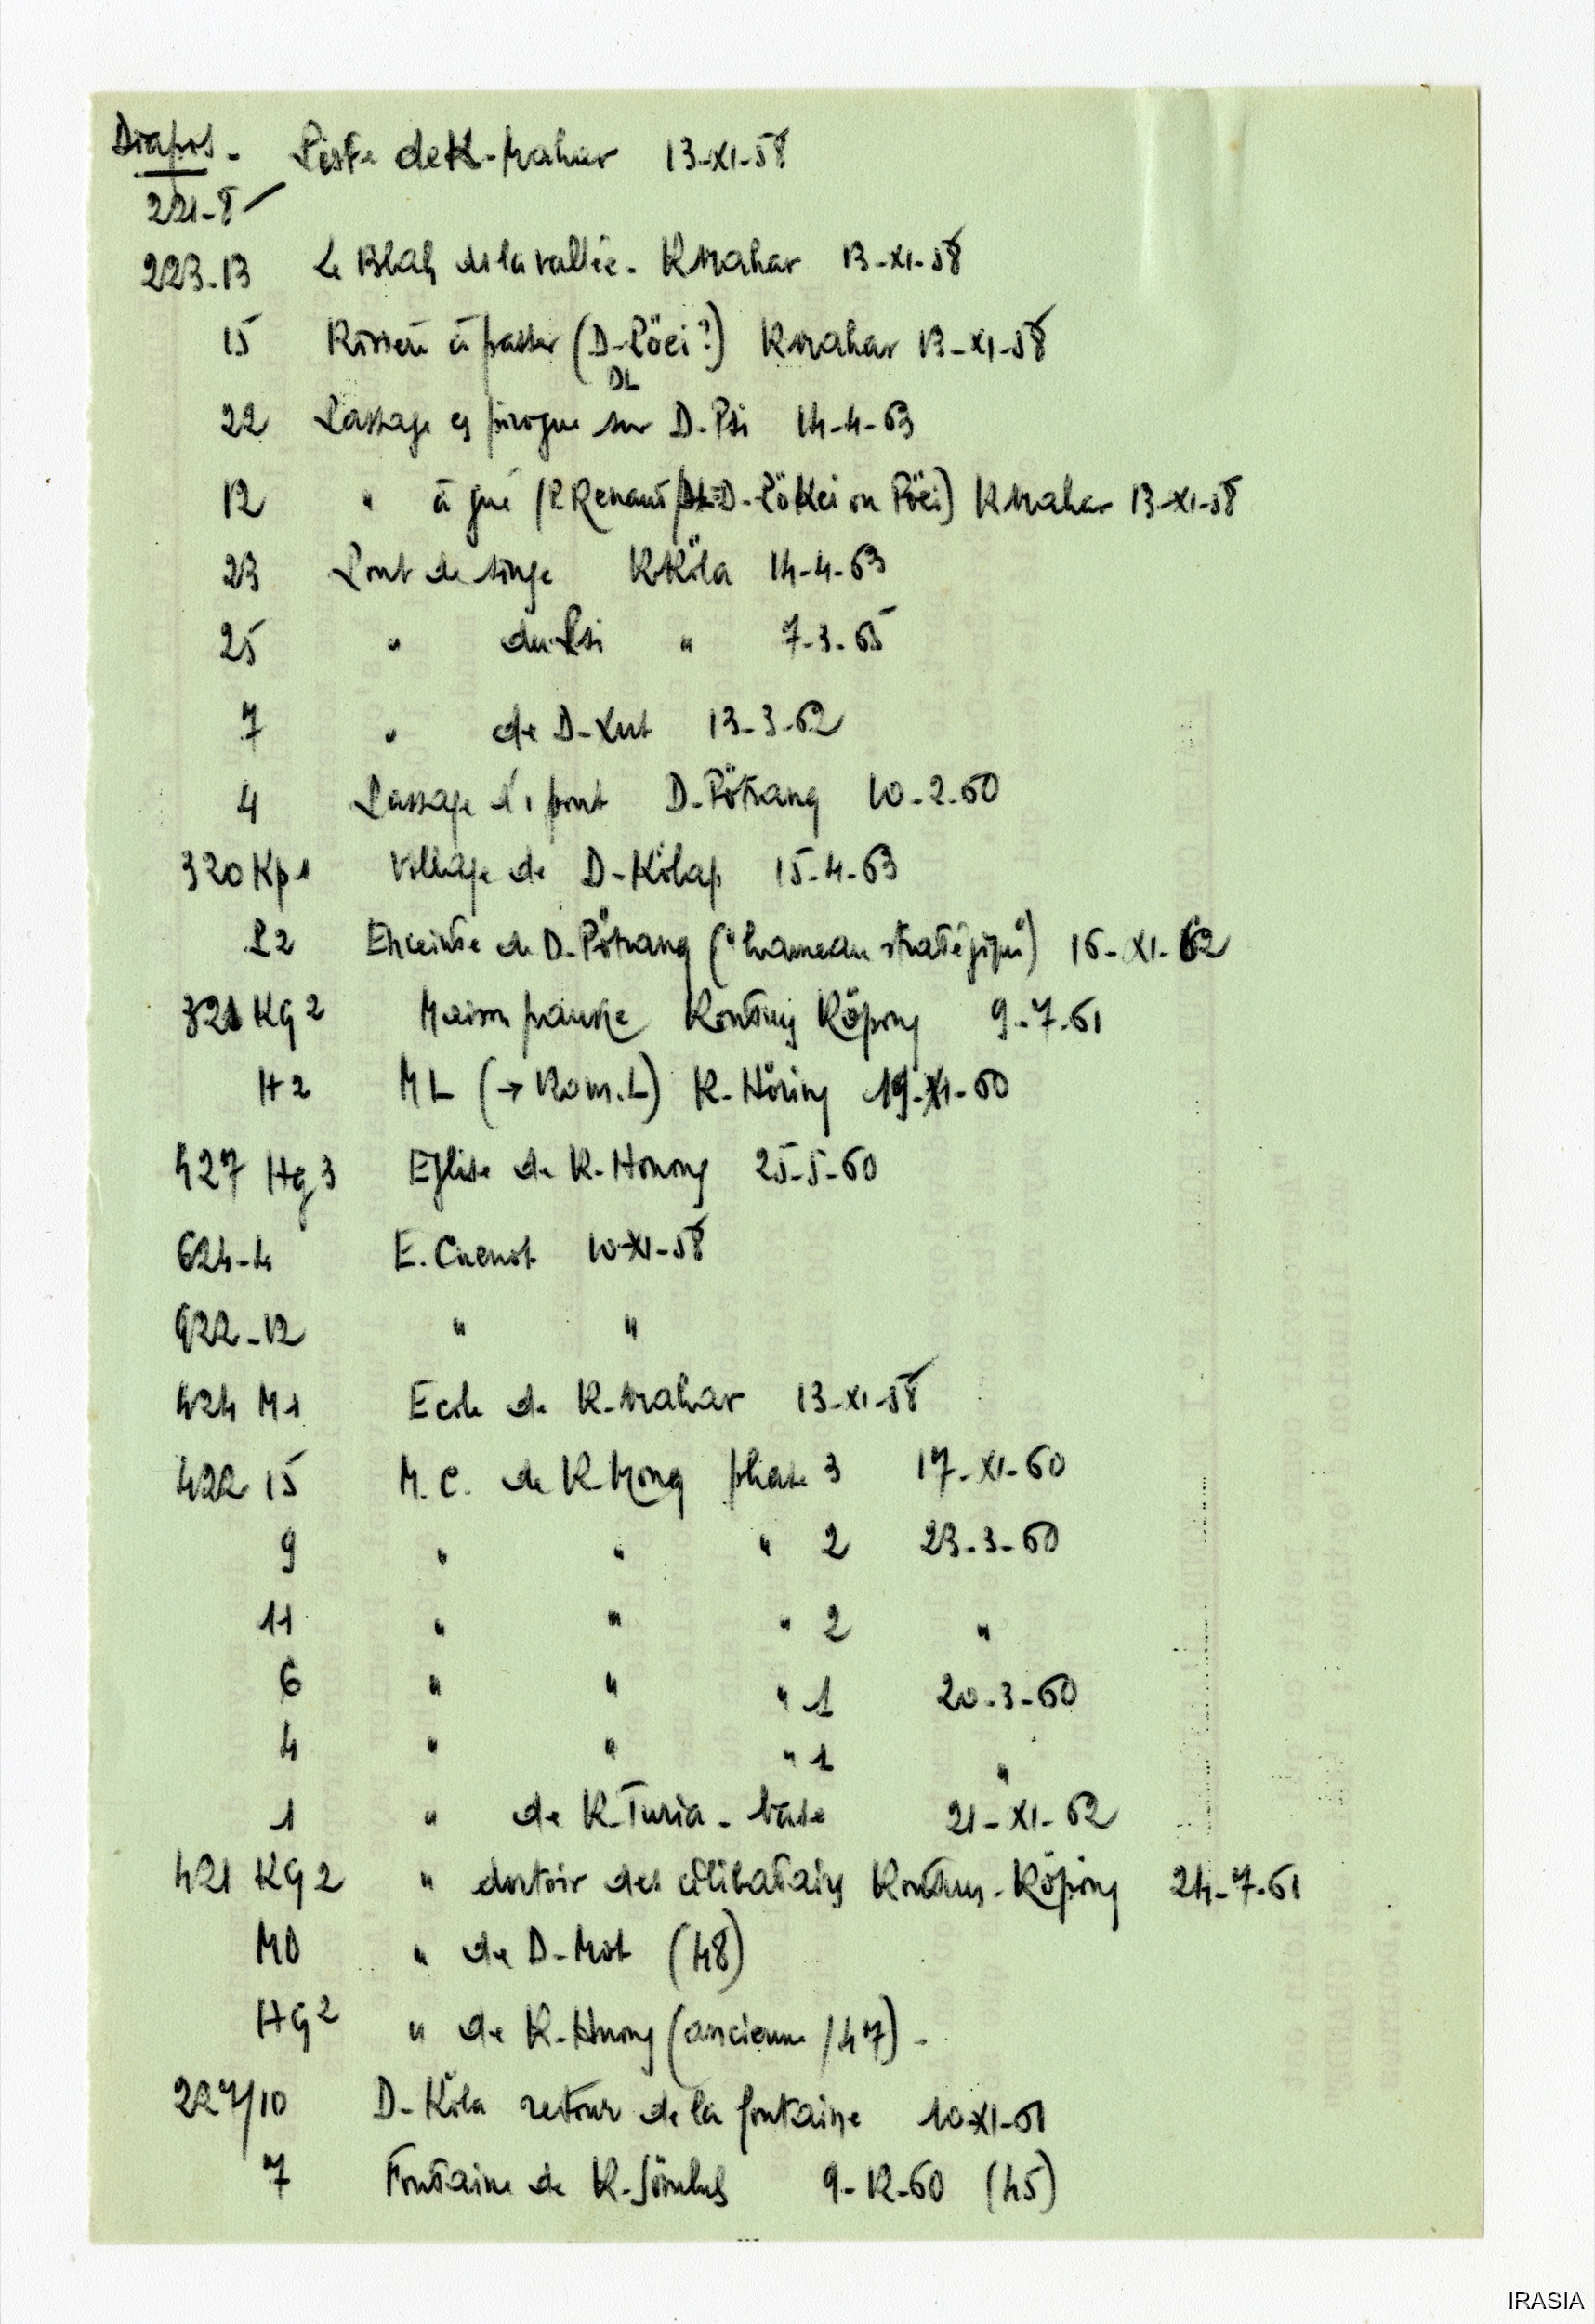 Diapos - Piste de K-Mahar 13-XI-58
221-8
223-13 Le Blah de la vallée - K Mahar 13-XI-58
15 Rivière à passer (D-Pöei?) K Mahar 13-XI-58
DL
22 Passage en pirogue sur D-Psi 14-4-63
12 " à gué (P. Renaud D-Pökei ou Pöei) K Mahar 13-XI-58
23 Pont de singe K Köla 14-4-63
25 " du Psi " 7-3-65
7 " de D-Xut 13-3-62
4 Passage d'1 pont D-Pötrang 10-2-60
320 Kp1 Village de D-Kölap 15-4-63
P2 Enceinte de D-Pötrang ("hameau stratégique") 16-XI-62
321 KG2 Maison pauvre Kontum Köpong 9-7-61
H2 ML (→ Rom.L) K-Höring 19-XI-60
427 Hg3 Eglise de K-Honong 25-5-60
624-4 E. Cuenot 10-XI-58
922-12 " "
424 M1 Ecole de K-Mahar 13-XI-58
422 15 M.C. de K-Mong phase 3 17-XI-60
9 " " " 2 23-3-60
11 " " " 2 "
6 " " " 1 20-3-60
4 " " " 1 "
1 " de K-Turia - base 21-XI-62
421 KG2 " dortoir des célibataires Kontum-Köpong 24-7-61
MD " de D-Mot (48)
HG2 " de K-Hnong (ancienne /47) -
227/10 D-Köla retour de la fontaine 10-XI-61
7 Fontaine de K- 9-12-60 (45)
IRASIA